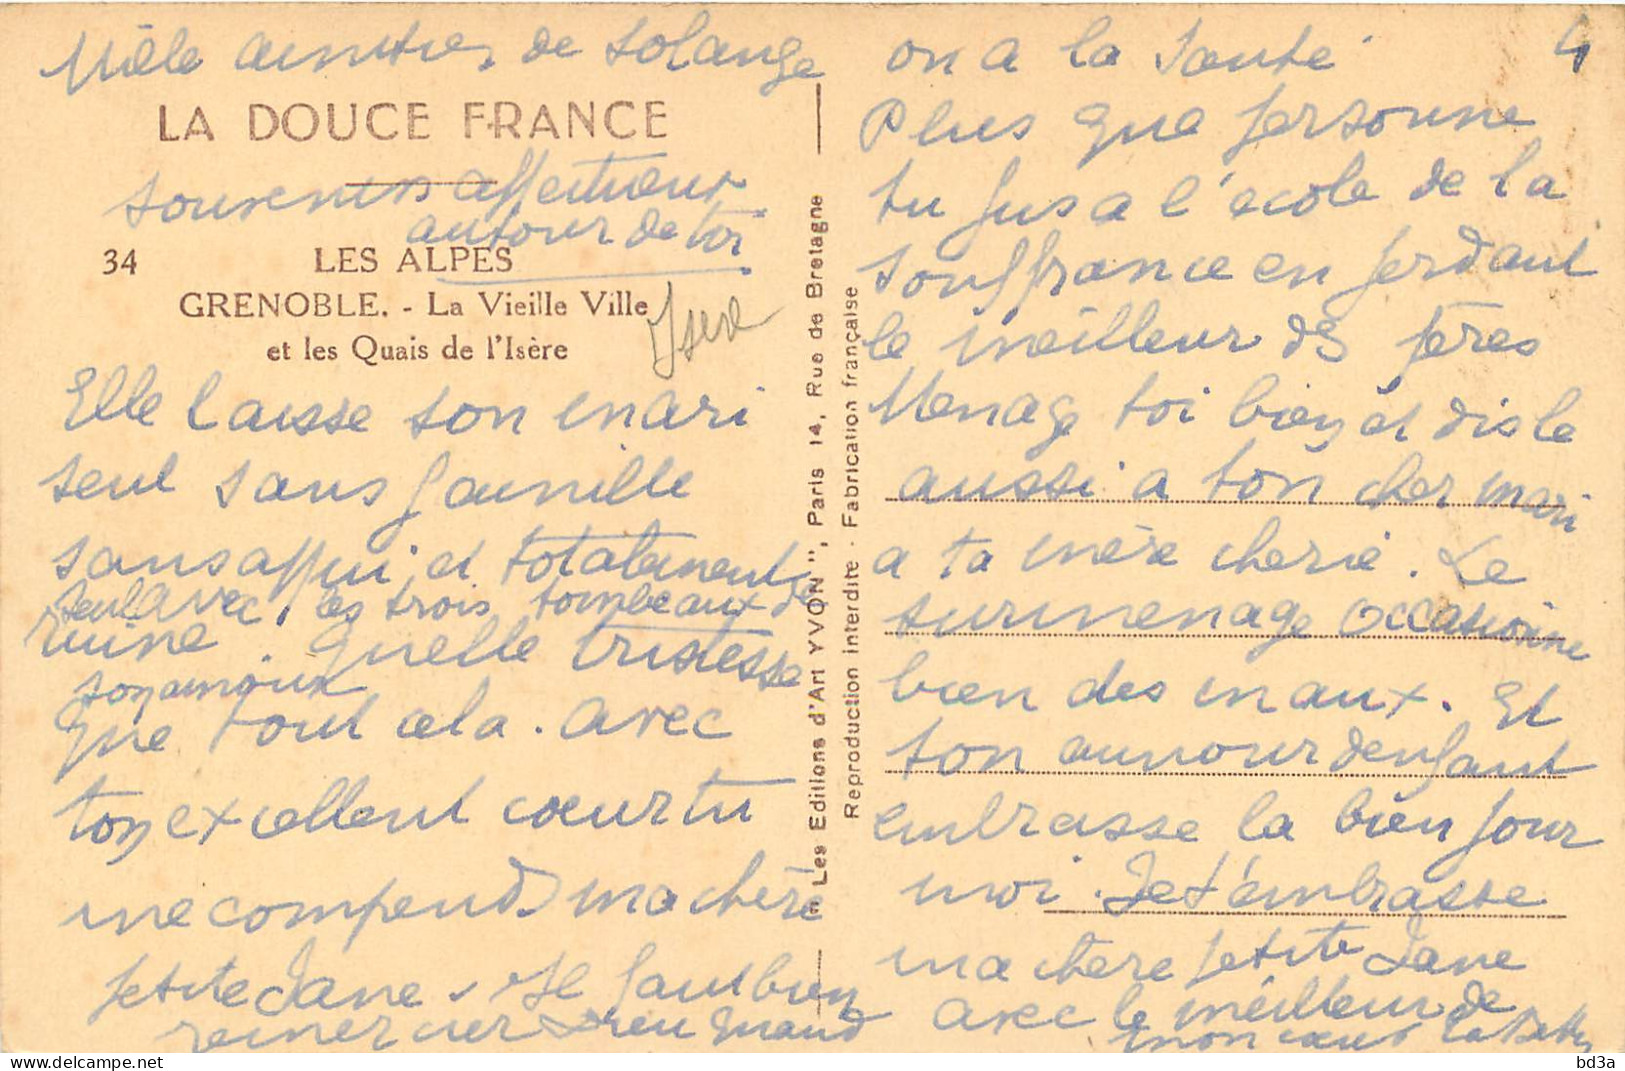 Mille amitiés de Solange
LA DOUCE FRANCE
souvenirs affectueux
autour de toi
34 LES ALPES
GRENOBLE. - La Vieille Ville
et les Quais de l'Isère
Isère
Elle laisse son mari
seul sans famille
sans appui et totalement
seul avec les trois tombeaux de
ruine. Quelle tristesse
son amour
que tout cela. avec
ton excellent cœur tu
me comprends ma chère
petite Jane. Il faut bien
remercier Dieu quand
Les Editions d'Art YVON", Paris 14, Rue de Bretagne
Reproduction interdite - Fabrication française
4
on a la santé
Plus que personne
tu fus a l'école de la
souffrance en perdant
le meilleur des pères
Menage toi bien et dis le
aussi a ton cher mari
a ta mère cherie. Le
surmenage occasionne
bien des maux. Et
ton amour d'enfant
embrasse la bien pour
moi. Je t'embrasse
ma chère petite Jane
avec le meilleur de
mon cœur
bd3a